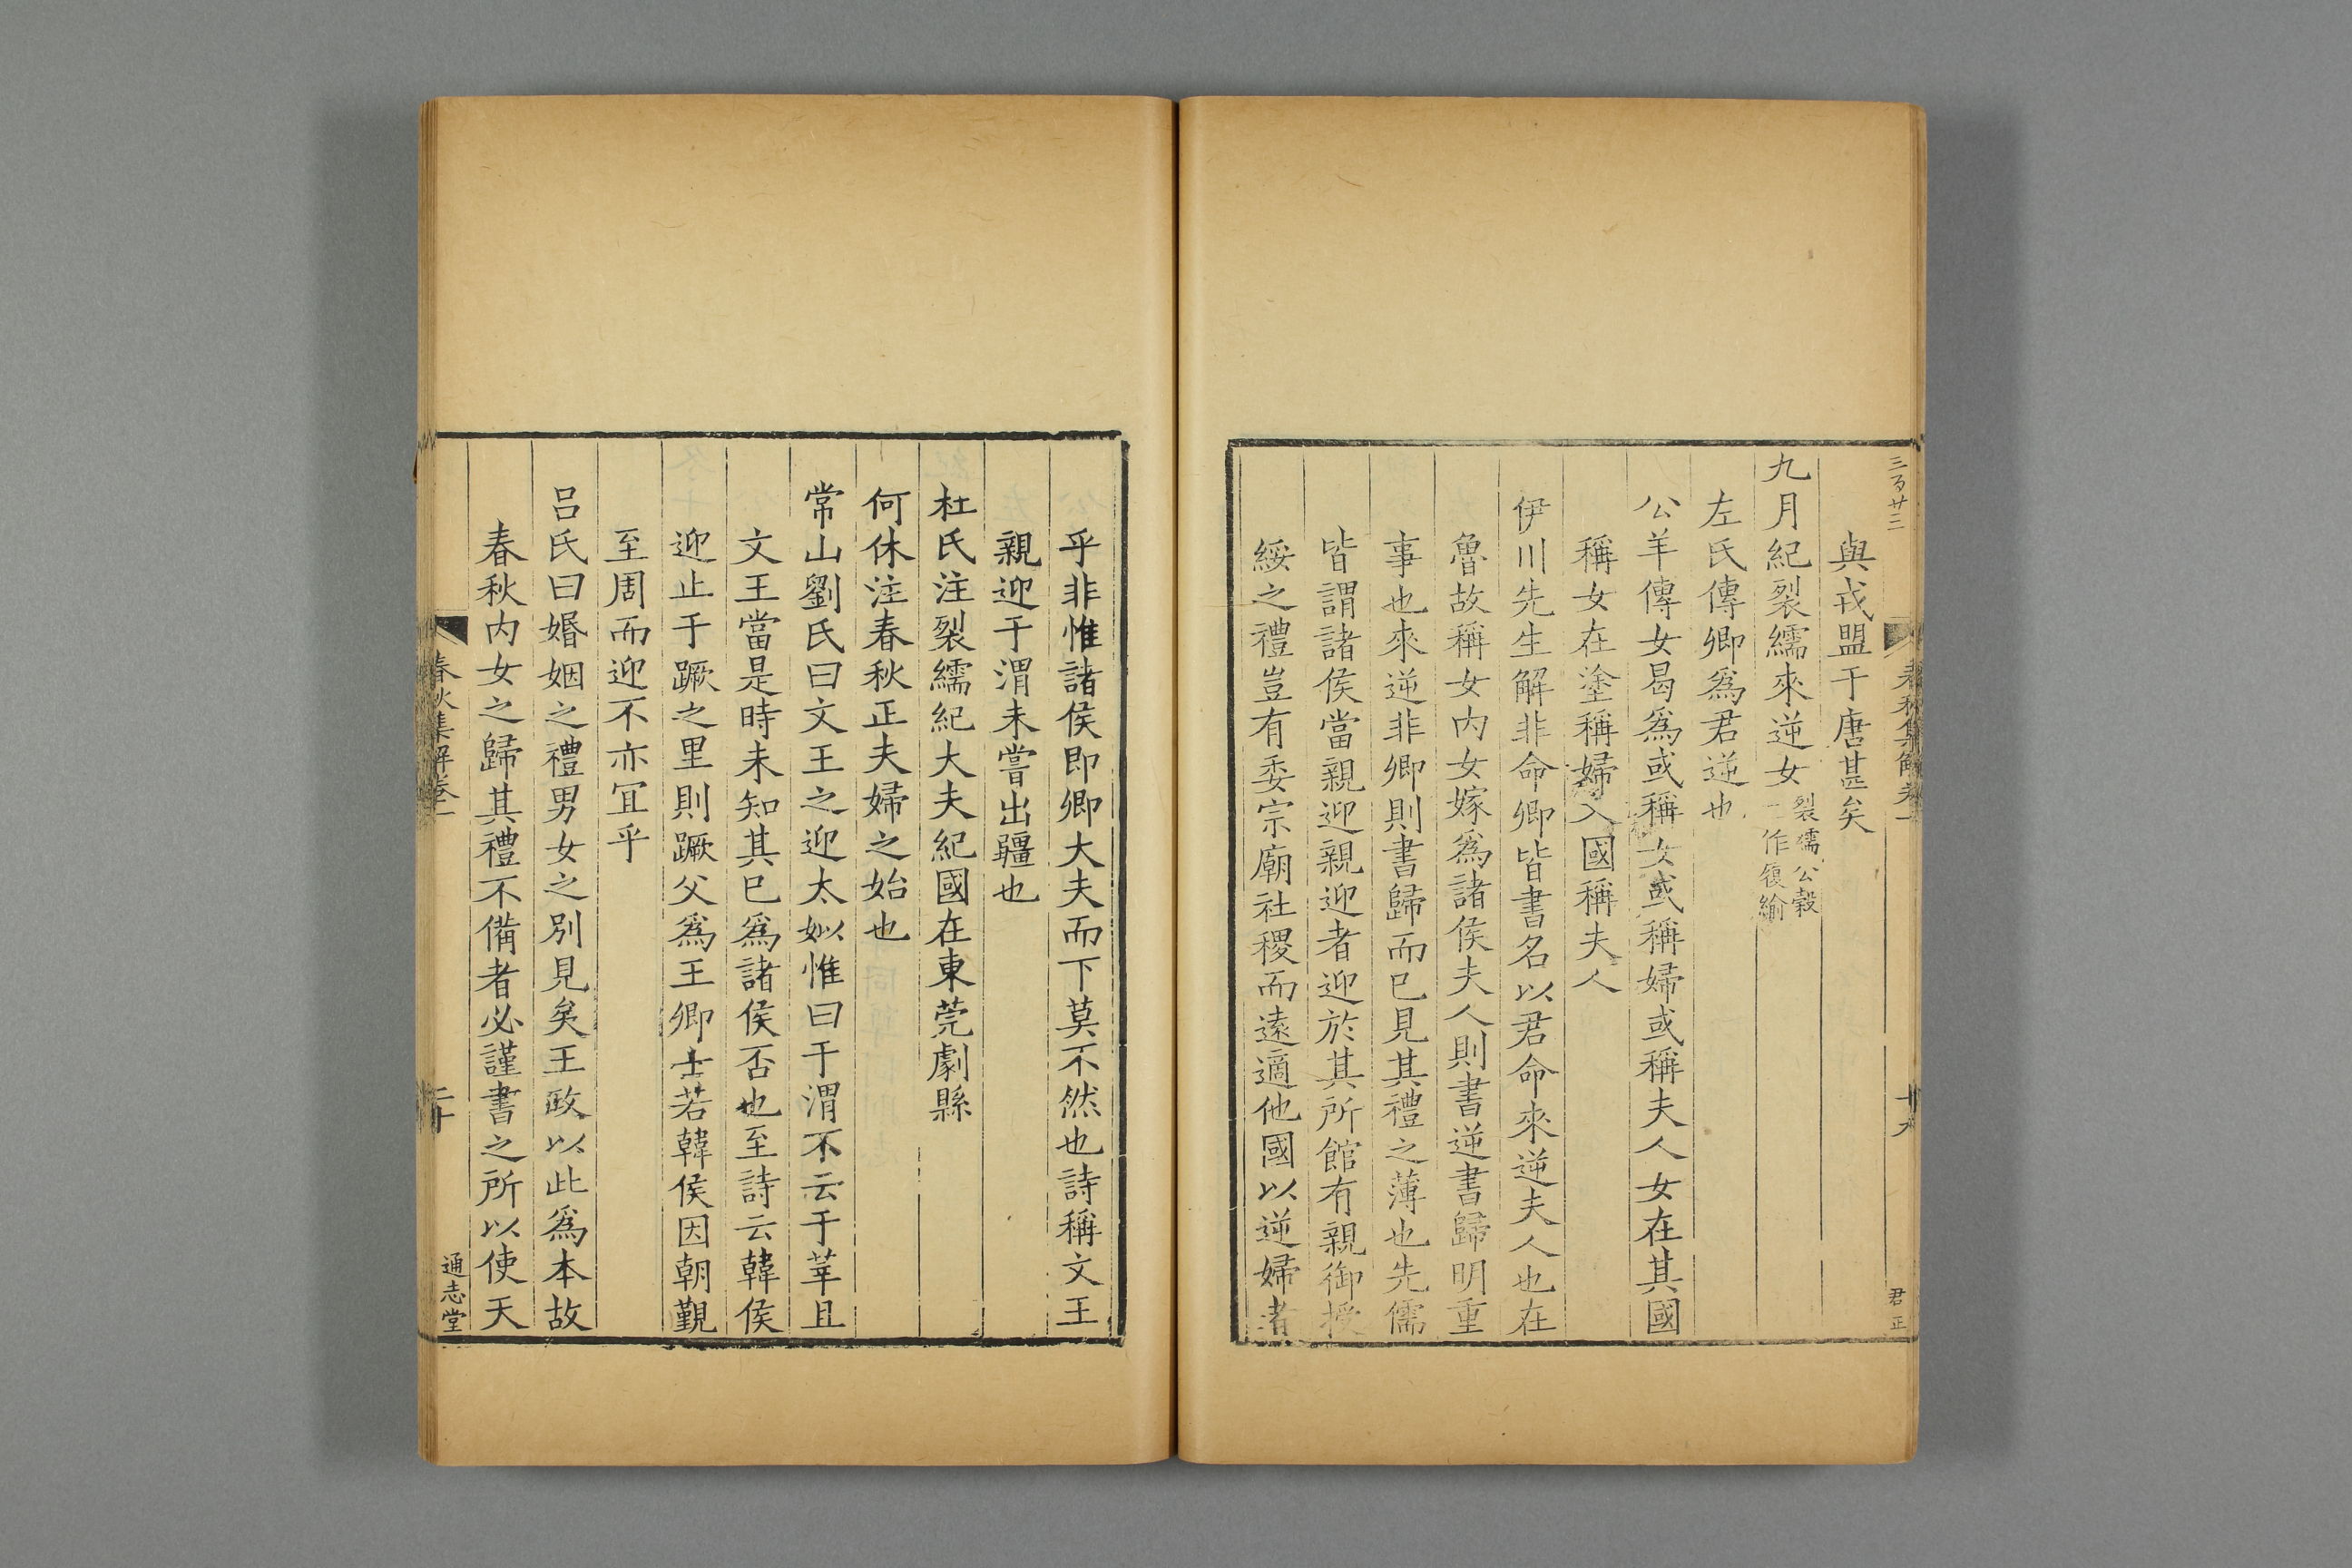 三百廿三
春秋集解卷一
十九
君正
與戎盟于唐甚矣
九月紀裂繻來逆女裂繻公穀
二作履緰
左氏傳卿爲君逆也
公羊傳女曷爲或稱女或稱婦或稱夫人女在其國
稱女在塗稱婦入國稱夫人
伊川先生解非命卿皆書名以君命來逆夫人也在
魯故稱女内女嫁爲諸侯夫人則書逆書歸明重
事也來逆非卿則書歸而已見其禮之薄也先儒
皆謂諸侯當親迎親迎者迎於其所館有親御授
綏之禮豈有委宗廟社稷而遠適他國以逆婦者
乎非惟諸侯即卿大夫而下莫不然也詩稱文王
親迎于渭未嘗出疆也
杜氏注裂繻紀大夫紀國在東莞劇縣
何休注春秋正夫婦之始也
常山劉氏曰文王之迎太姒惟曰于渭不云于莘且
文王當是時未知其已爲諸侯否也至詩云韓侯
迎止于蹶之里則蹶父爲王卿士若韓侯因朝覲
至周而迎不亦宜乎
吕氏曰婚姻之禮男女之別見矣王政以此爲本故
春秋内女之歸其禮不備者必謹書之所以使天
春秋集解卷一
二十
通志堂